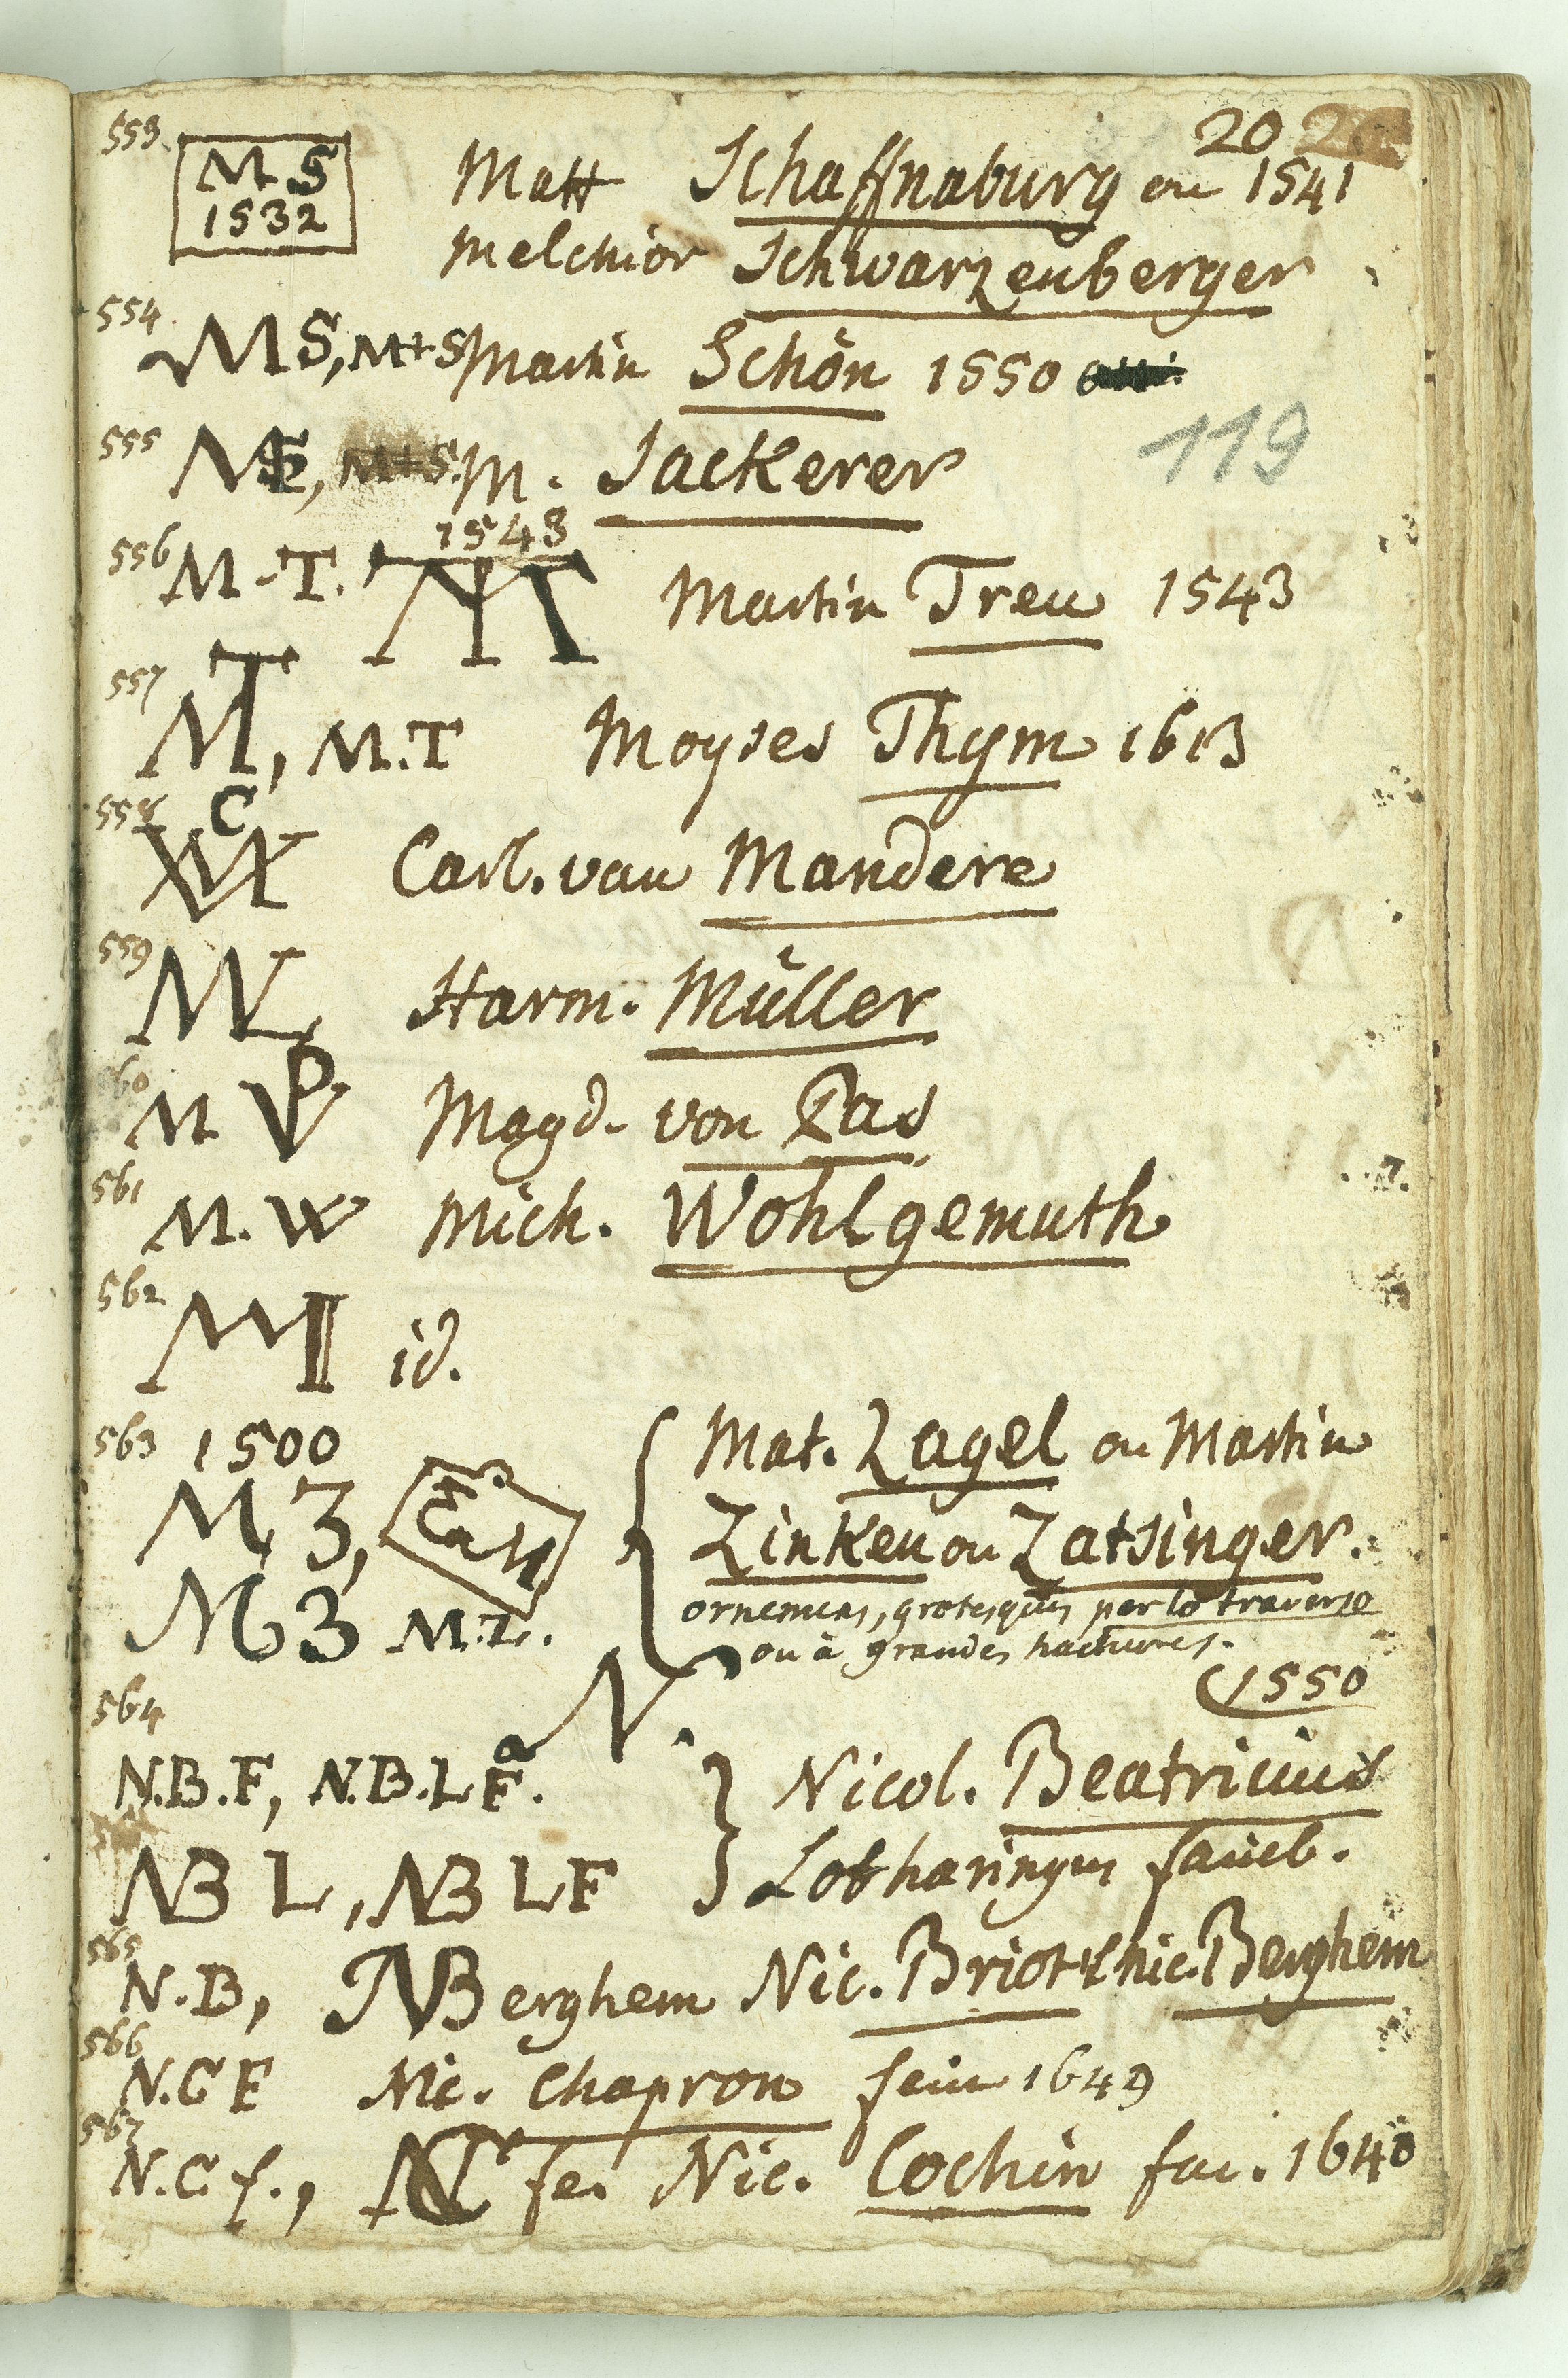 20 26
553. M S Matt Schaffnaburg ou 1541
1532 Melchior Schwarzenberger
554. MS, M+S Martin Schön 1550
555 MS, M+S. M. Sackerer
119
1543
556 M-T. MT Martin Treu 1543
557 MT, M.T Moyses Thym 1613
558 C Carl. van Mandere
559 Harm. Müller
560 M VP Magd. von Pas
561 M. W Mich. Wohlgemuth
562 id.
563 1500 Mat. Zagel ou Martin
M, Z, Zinken ou Zatsinger.
M3 M.Z. ornemens, grotesques par le traverse
ou à grandes hachures.
N. 1550
564
N.B.F, N.B.L.F. Nicol. Beatricius
NB L, NB LF Lotharingus
565 N.B, NBerghem Nic. Briot & nic. Berghem
566 N.C F Nic. Chapron 1649
567 N.C. f., NC fe. Nic. Cochin 1640